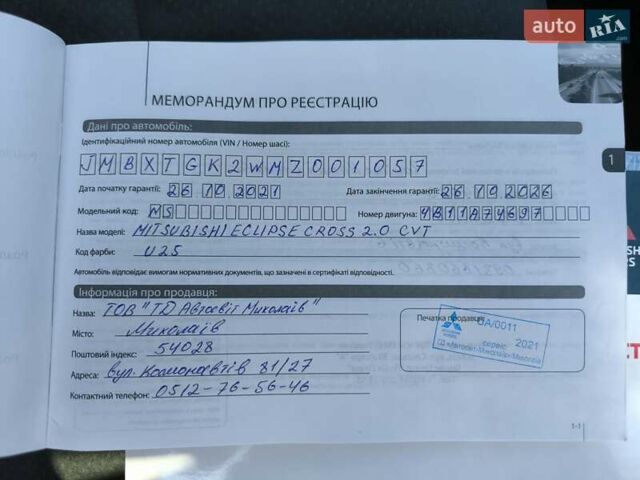 auto RIA .com
МЕМОРАНДУМ ПРО РЕЄСТРАЦІЮ
Дані про автомобіль:
Ідентифікаційний номер автомобіля (VIN / Номер шасі):
JMBXTGK2WMZ001057
Дата початку гарантії: 26.10.2021 Дата закінчення гарантії: 26.10.2026
Модельний код: MS Номер двигуна: 4B11A74697
Назва моделі: MITSUBISHI ECLIPSE CROSS 2.0 CVT
Код фарби: U25
Автомобіль відповідає вимогам нормативних документів, що зазначені в сертифікаті відповідності.
Інформація про продавця:
Назва: ТОВ "ТД Автосвіт Миколаїв"
Місто: Миколаїв
Поштовий індекс: 54028
Адреса: вул. Космонавтів 81/27
Контактний телефон: 0512-76-56-46
Печатка продавця:
UA/0011
сервіс 2021
ТД «Автосвіт-Миколаїв» Миколаїв
1
1-1